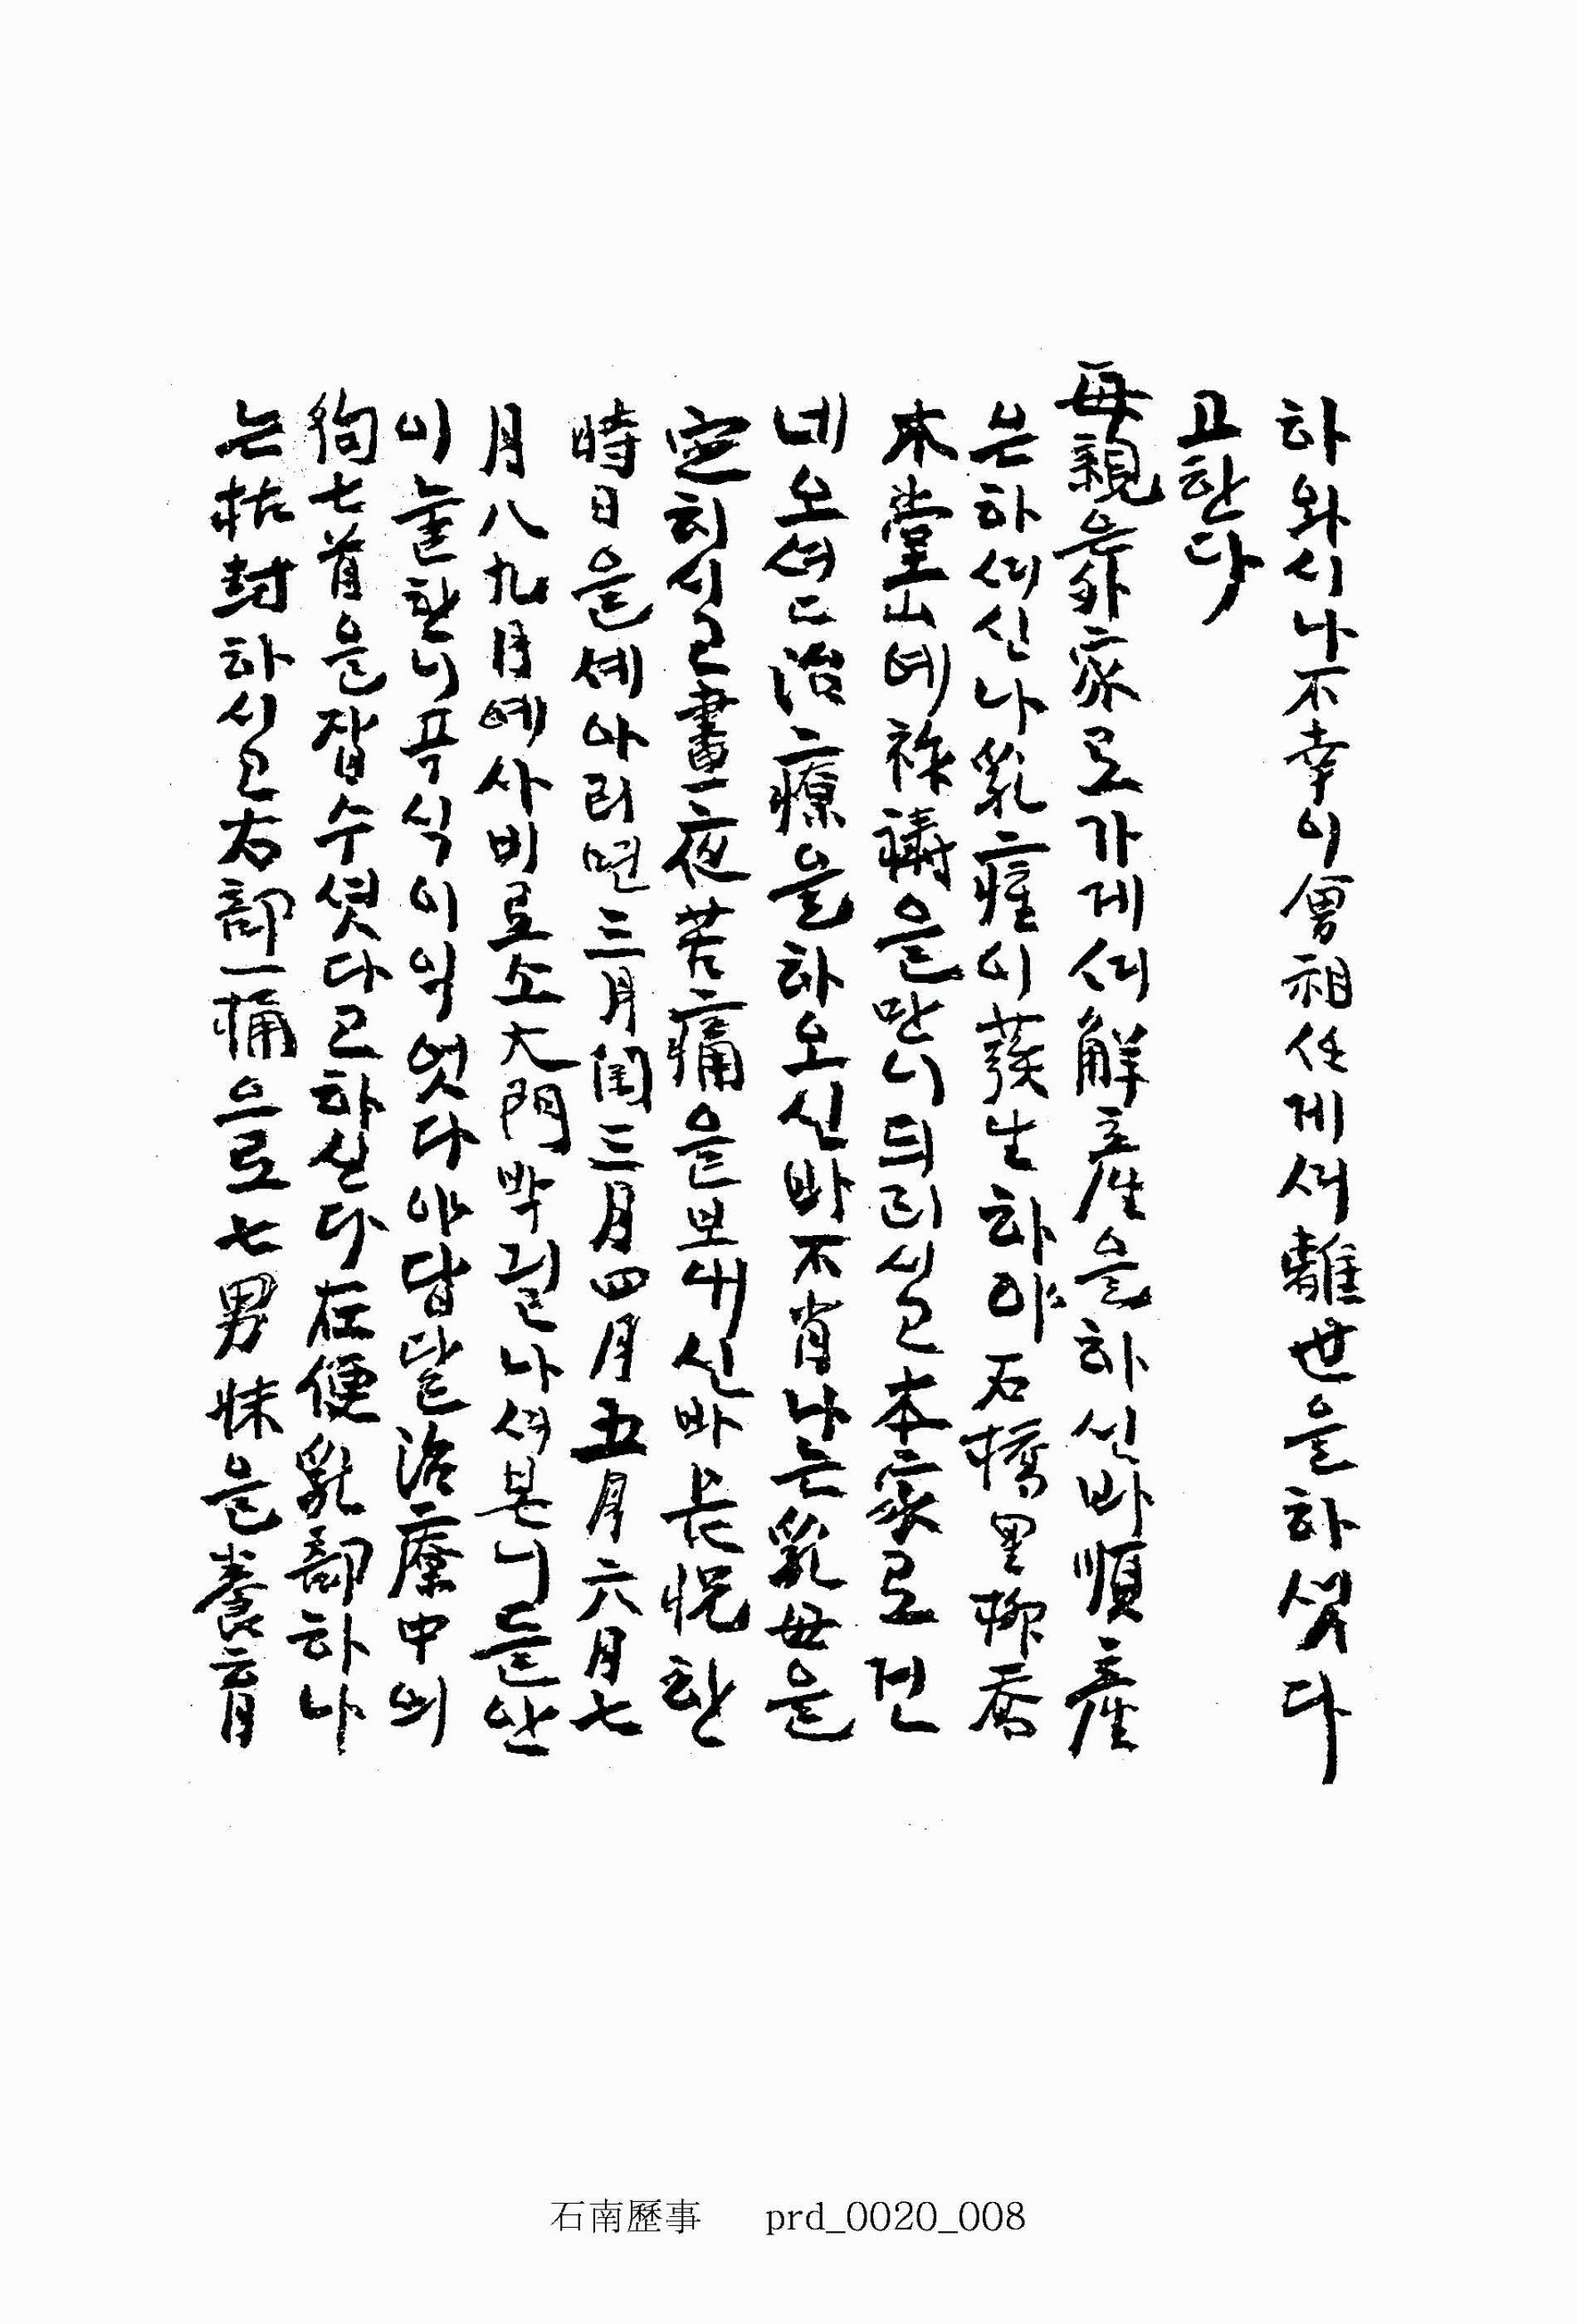 하와시나 不幸이 曾祖任게셔 離世을 하셧다
고 한다
母親는 外家로 가게셔 解産을 하신바 順産
은 하셔신나 乳疽이 發生하야 石橋里 柳喬
本堂山예 을 만니 듸리시고 本家로 건
네오셔 治療을 하오신바 不肖 나는 乳母을
定치시고 晝夜 苦痛을 보내신바 長悅한
時日을 셰아리면 三月 閏三月 四月 五月 六月 七
月 八九月예사 비로소 大門박 긜 나셔 본니 들안
이 눌한니 푸식이 익엇다야 답달 治療中의
狗七首을 잡수셧다고 하신다 左便 乳部하나
는 枯封하시고 右部 一桶으로 七男妹을 養育
石南歷事 prd_0020_008